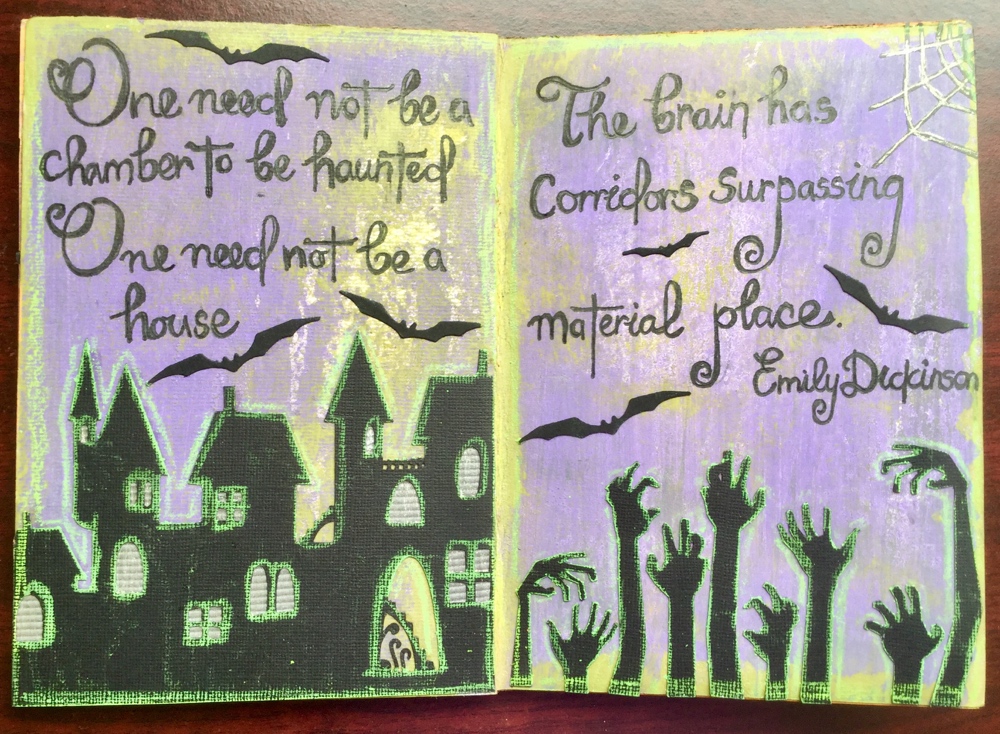 One need not be a
chamber to be haunted
One need not be a
house
The brain has
Corridors surpassing
material place.
Emily Dickinson